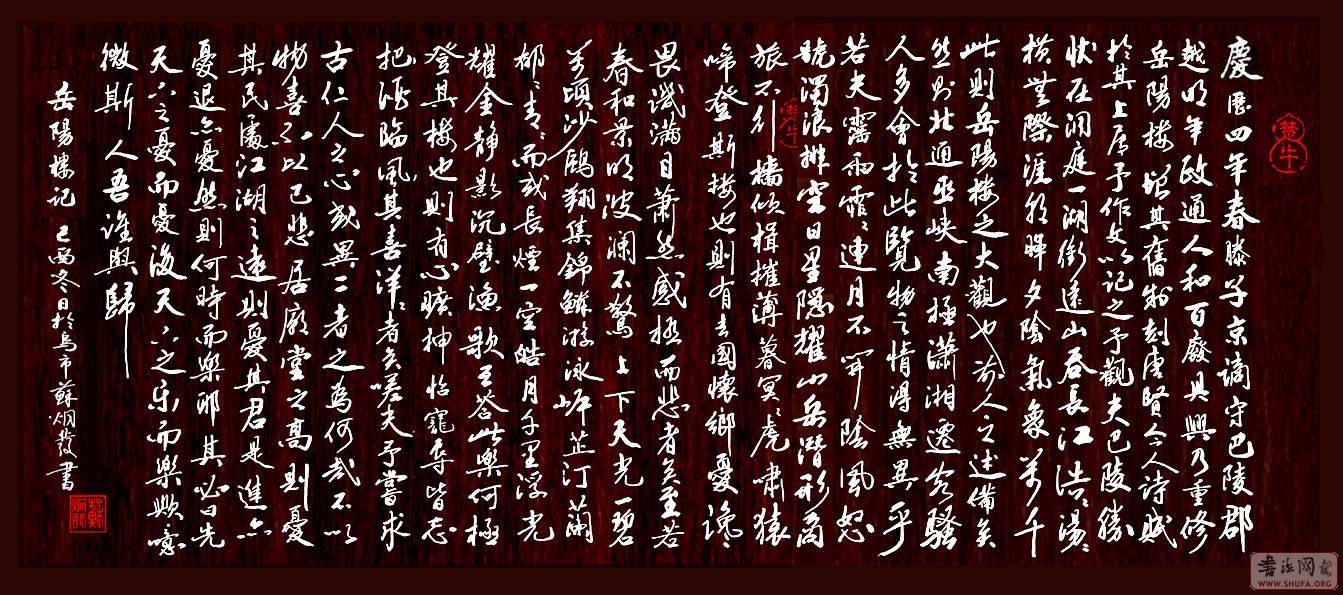 慶歷四年春滕子京謫守巴陵郡
越明年政通人和百廢具興乃重修
岳陽樓增其舊制刻唐賢今人詩賦
於其上屬予作文以記之予觀夫巴陵勝
狀在洞庭一湖銜遠山吞長江浩浩湯湯
橫無際涯朝暉夕陰氣象萬千
此則岳陽樓之大觀也前人之述備矣
然則北通巫峽南極瀟湘遷客騷
人多會於此覽物之情得無異乎
若夫霪雨霏霏連月不開陰風怒
號濁浪排空日星隱耀山岳潛形商
旅不行檣傾楫摧薄暮冥冥虎嘯猿
啼登斯樓也則有去國懷鄉憂讒
畏譏滿目蕭然感極而悲者矣至若
春和景明波瀾不驚上下天光一碧
萬頃沙鷗翔集錦鱗游泳岸芷汀蘭
郁郁青青而或長煙一空皓月千里浮光
耀金靜影沉璧漁歌互答此樂何極
登其樓也則有心曠神怡寵辱皆忘
把酒臨風其喜洋洋者矣嗟夫予嘗求
古仁人之心或異二者之為何哉不以
物喜不以己悲居廟堂之高則憂
其民處江湖之遠則憂其君是進亦
憂退亦憂然則何時而樂耶其必曰先
天下之憂而憂後天下之樂而樂歟噫
微斯人吾誰與歸
岳陽樓記 己酉冬日於烏市蘇炯發書
楚牛
書法网
WWW.SHUFA.ORG